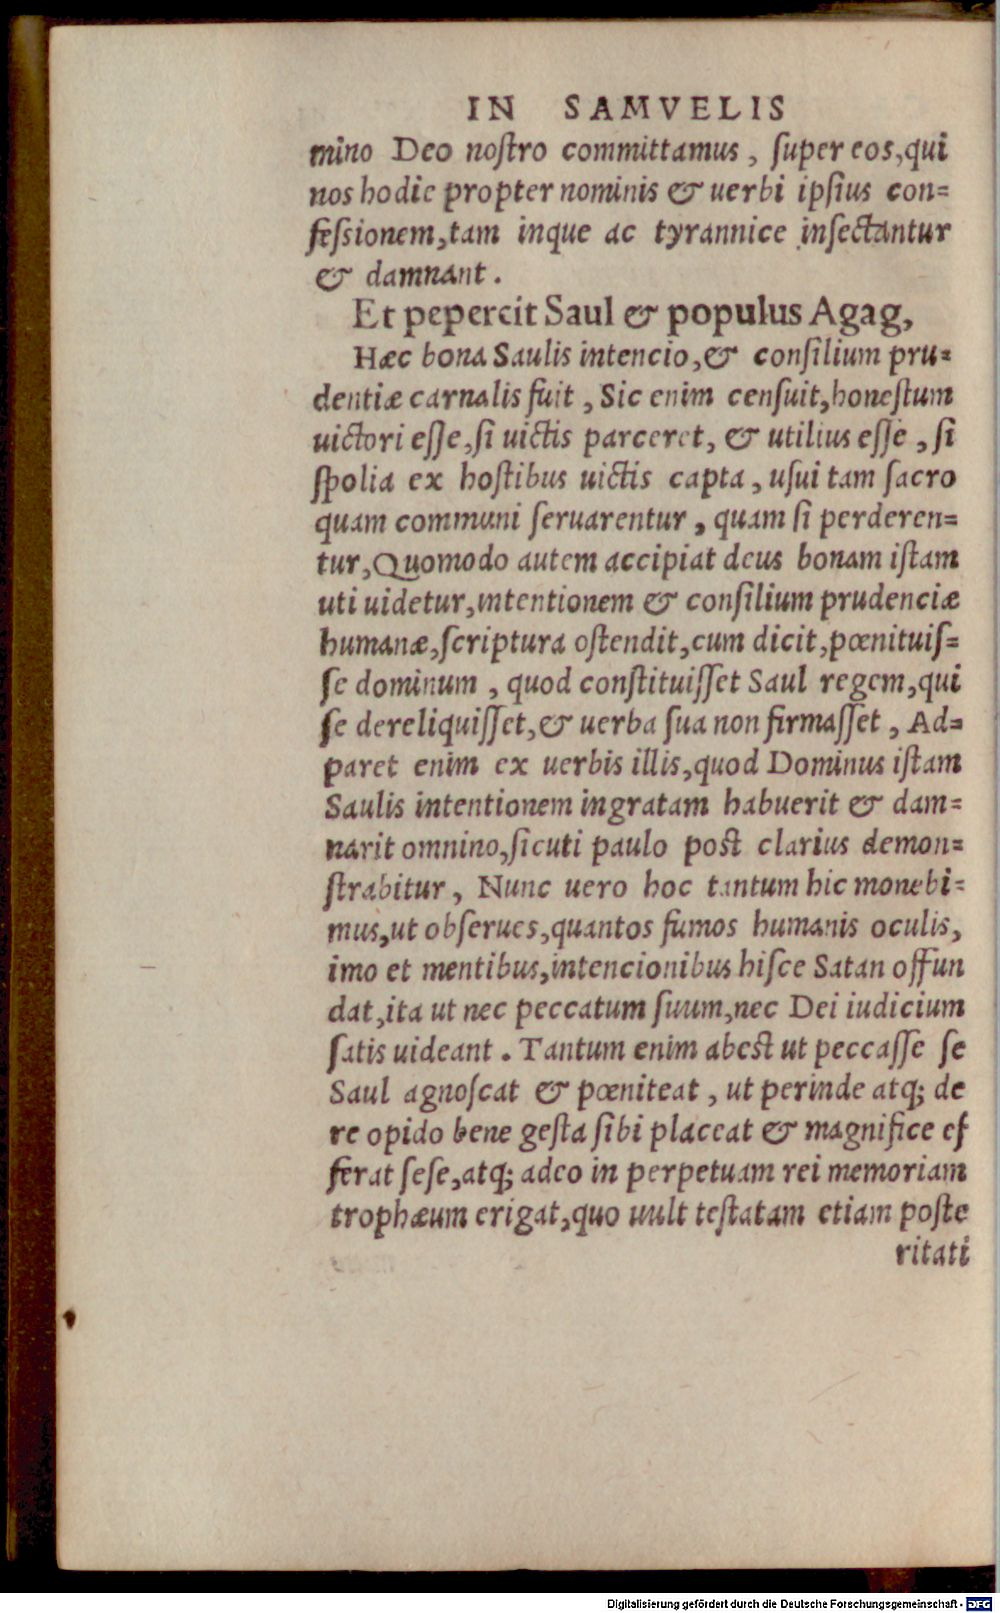 IN SAMVELIS
mino Deo noſtro committamus, ſuper eos,qui
nos hodie propter nominis & uerbi ipſius con=
feſsionem,tam inque ac tyrannice inſectantur
& damnant.
Et pepercit Saul & populus Agag,
Hæc bona Saulis intencio,& conſilium pru=
dentiæ carnalis fuit, Sic enim cenſuit,honeſtum
uictori eſſe,ſi uictis parceret, & utilius eſſe, ſi
ſpolia ex hoſtibus uictis capta, uſui tam ſacro
quam communi ſeruarentur, quam ſi perderen=
tur,Quomodo autem accipiat deus bonam iſtam
uti uidetur,intentionem & conſilium prudenciæ
humanæ,ſcriptura oſtendit,cum dicit,pœnituiſ=
ſe dominum, quod conſtituiſſet Saul regem,qui
ſe dereliquiſſet,& uerba ſua non firmaſſet, Ad=
paret enim ex uerbis illis,quod Dominus iſtam
Saulis intentionem ingratam habuerit & dam=
narit omnino,ſicuti paulo poſt clarius demon=
ſtrabitur, Nunc uero hoc tantum hic monebi=
mus,ut obſerues,quantos fumos humanis oculis,
imo et mentibus,intencionibus hiſce Satan offun
dat,ita ut nec peccatum ſuum,nec Dei iudicium
ſatis uideant. Tantum enim abeſt ut peccaſſe ſe
Saul agnoſcat & pœniteat, ut perinde atq; de
re opido bene geſta ſibi placeat & magnifice ef
ferat ſeſe,atq; adeo in perpetuam rei memoriam
trophæum erigat,quo uult teſtatam etiam poſte
ritati
Digitalisierung gefördert durch die Deutsche Forschungsgemeinschaft - DFG